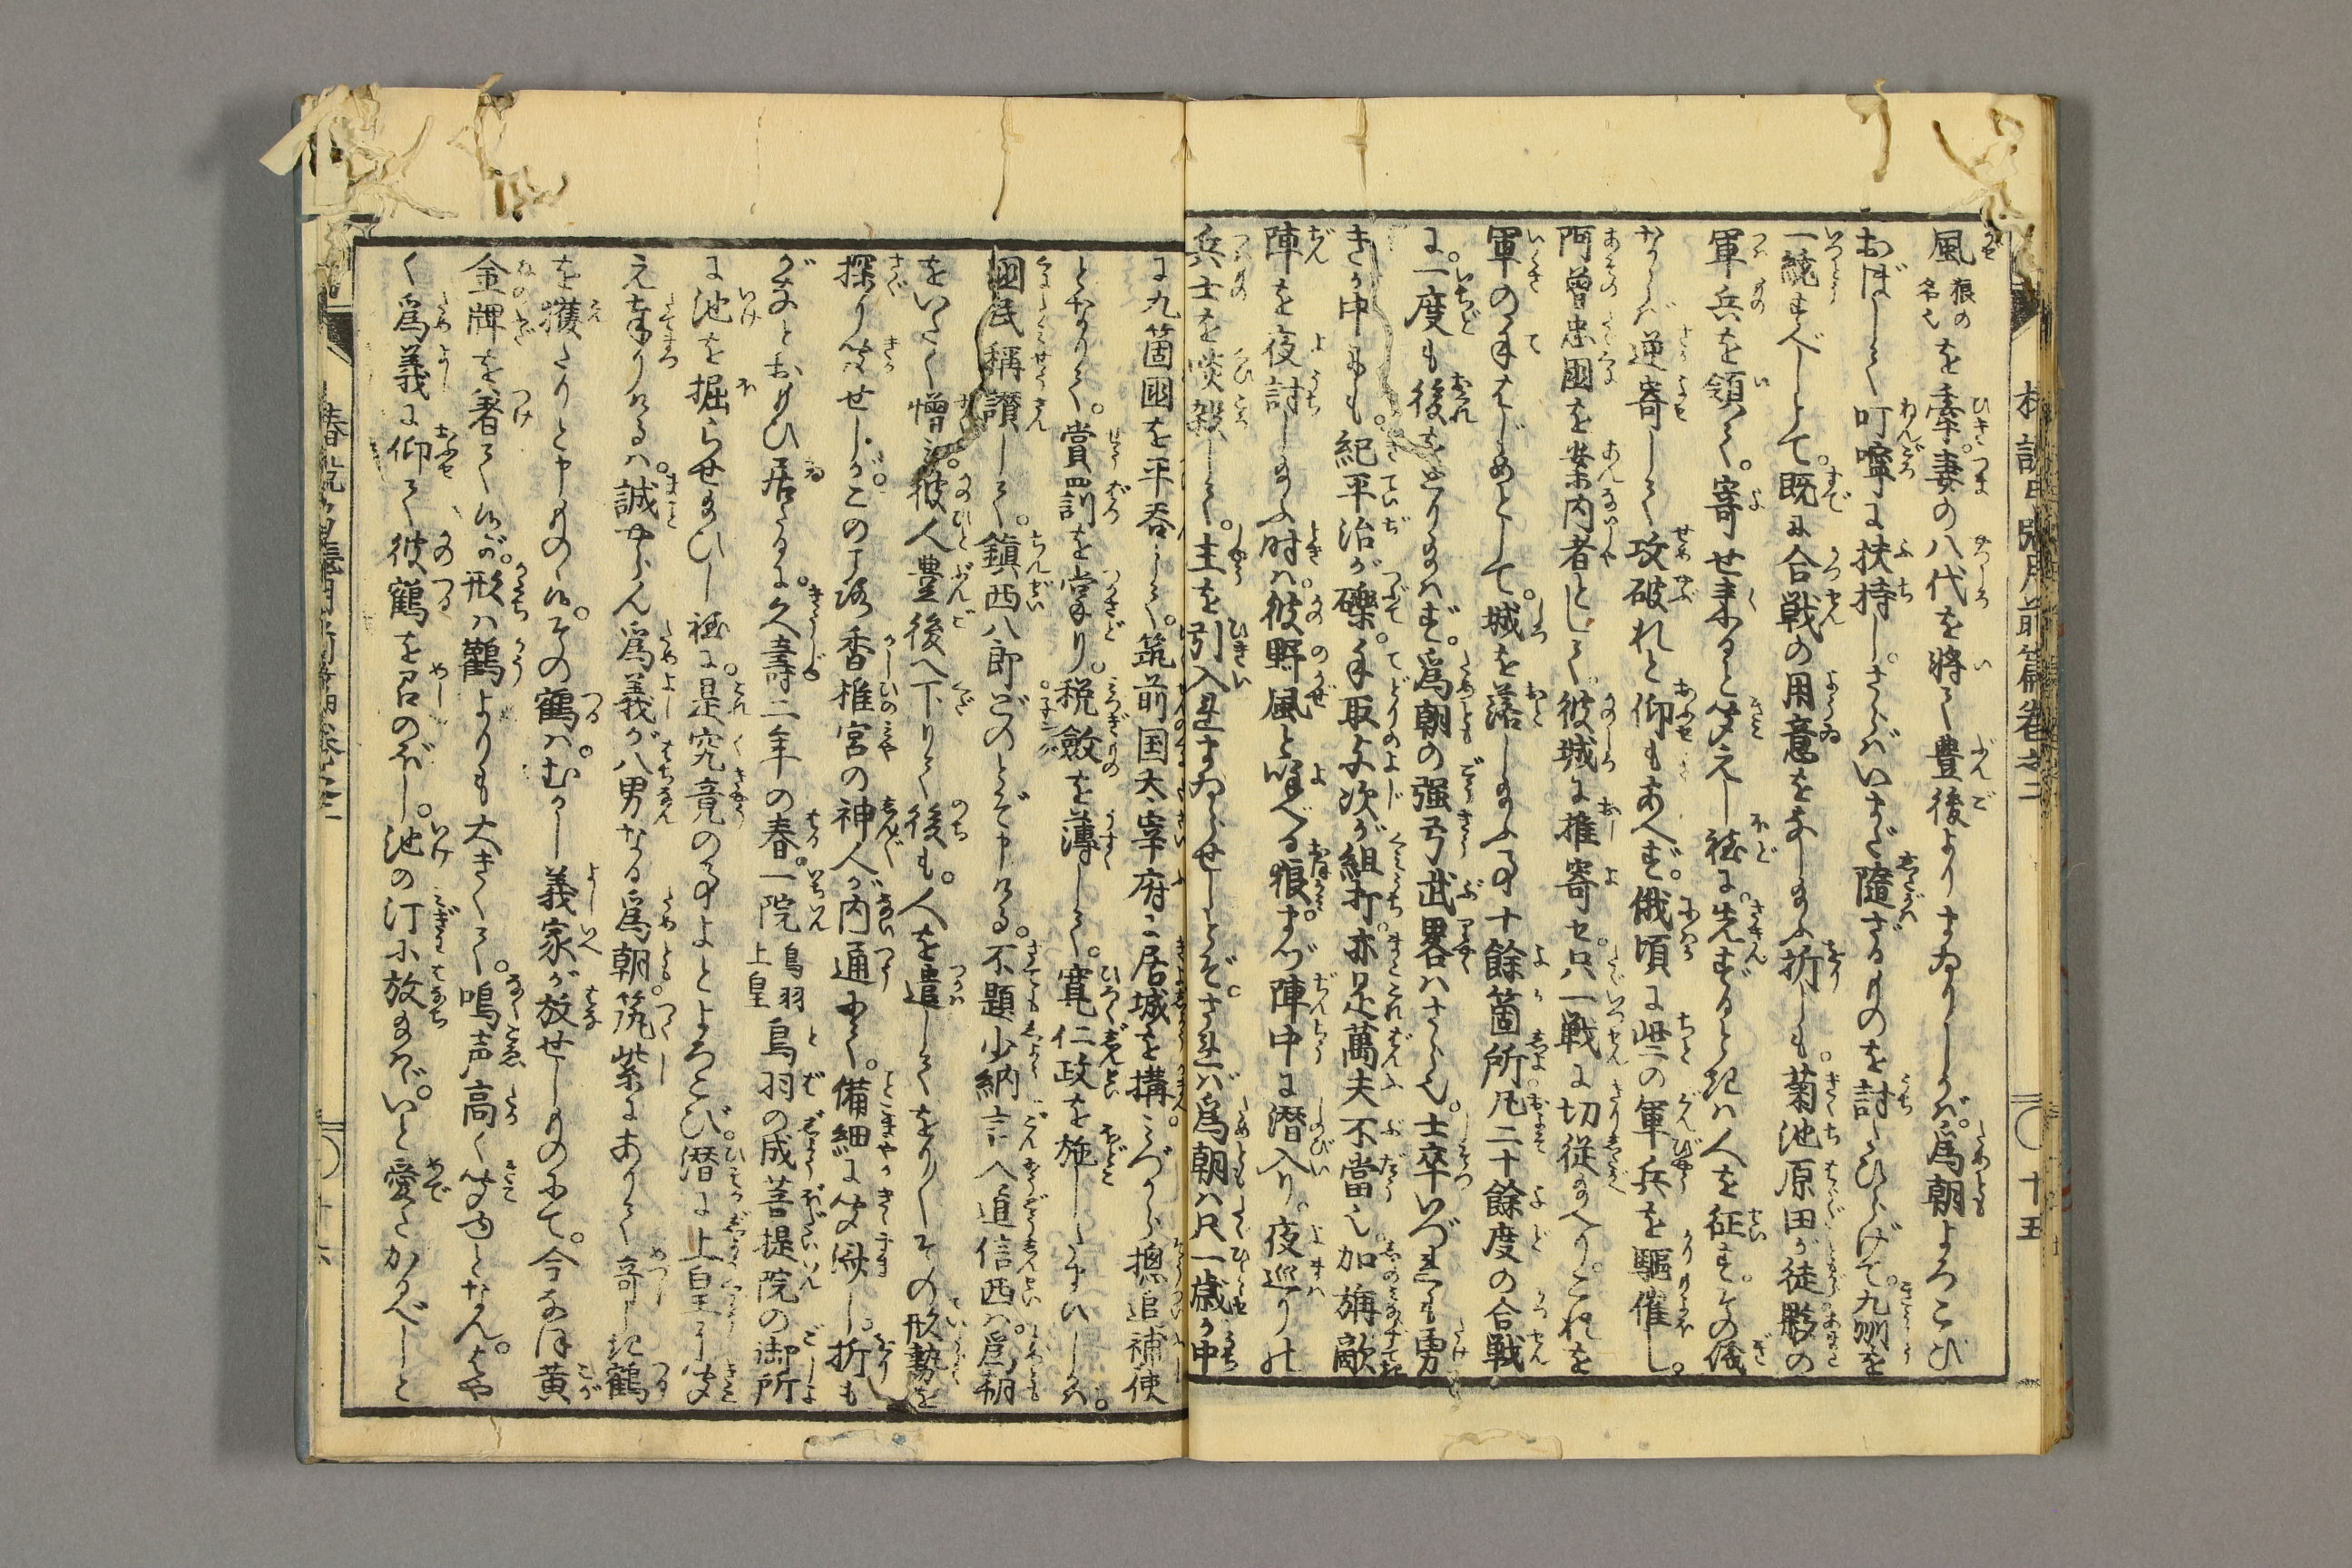 風狼の名也を牽。妻の八代を將て豊後よりまゐりしかば。爲朝よろこび
おぼして叮嚀に扶持し。さらばいまだ隨ざるものを討たひらげて。九州を
一統すべしとて。既に合戦の用意をなし給ふ折しも。菊池原田が徒夥の
軍兵を領て。寄せ來ると聞えし程に。先ずるときは人を征す。その儀
ならば逆寄して攻破れと仰もあへず。俄頃に些の軍兵を驅催し。
阿曽忠國を案内者として彼城に推寄せ。只一戦に切従給へり。これを
軍の手はじめとして。城を落し給ふ事十餘箇所。凡二十餘度の合戦
に。一度も後をとり給はず。爲朝の强弓武畧はさら也。士卒いづれも勇
きが中にも。紀平治が礫。手取与次が組打。亦是萬夫不當也。加旃敵
陣を夜討し給ふ時は。彼野風と喚べる狼。まづ陣中に潛入り。夜巡りの
兵士を啖殺して。主を引入れまゐらせしとぞ。されば爲朝は只一歳が中
に九箇國を平吞して。筑前国太宰府に居城を搆。みづから摠追補使
となりて。賞罰を掌り。税斂を薄して。寛仁政を施したまひしかば。
國民稱讃して。鎭西八郎どのとぞ申ける。不題少納言入道信西は。爲朝
をいたく憎み。彼人豊後へ下りて後も。人を遣してをり〳〵その形勢を
探り聞せしが。この事。香椎宮の神人が内通にて。備細に聞濟し。折も
がなとおもひ居たるに。久壽二年の春。一院鳥羽上皇鳥羽の成菩提院の御所
に池を掘らせ給ひし程に。是究竟の事よとよろこび。潛に上皇に聞
え奉りけるは。誠やらん爲義が八男なる爲朝。筑紫にありて奇しき鶴
を獲たりと申ものは。その鶴は。むかし義家が放せしものにて。今なほ黄
金牌を著て候が。形は鸛よりも大きくて。鳴声高く聞ゆとなん。はや
く爲義に仰て彼鶴を召のぼし。池の汀に放給はゞ。いと愛たかるべしと
十五